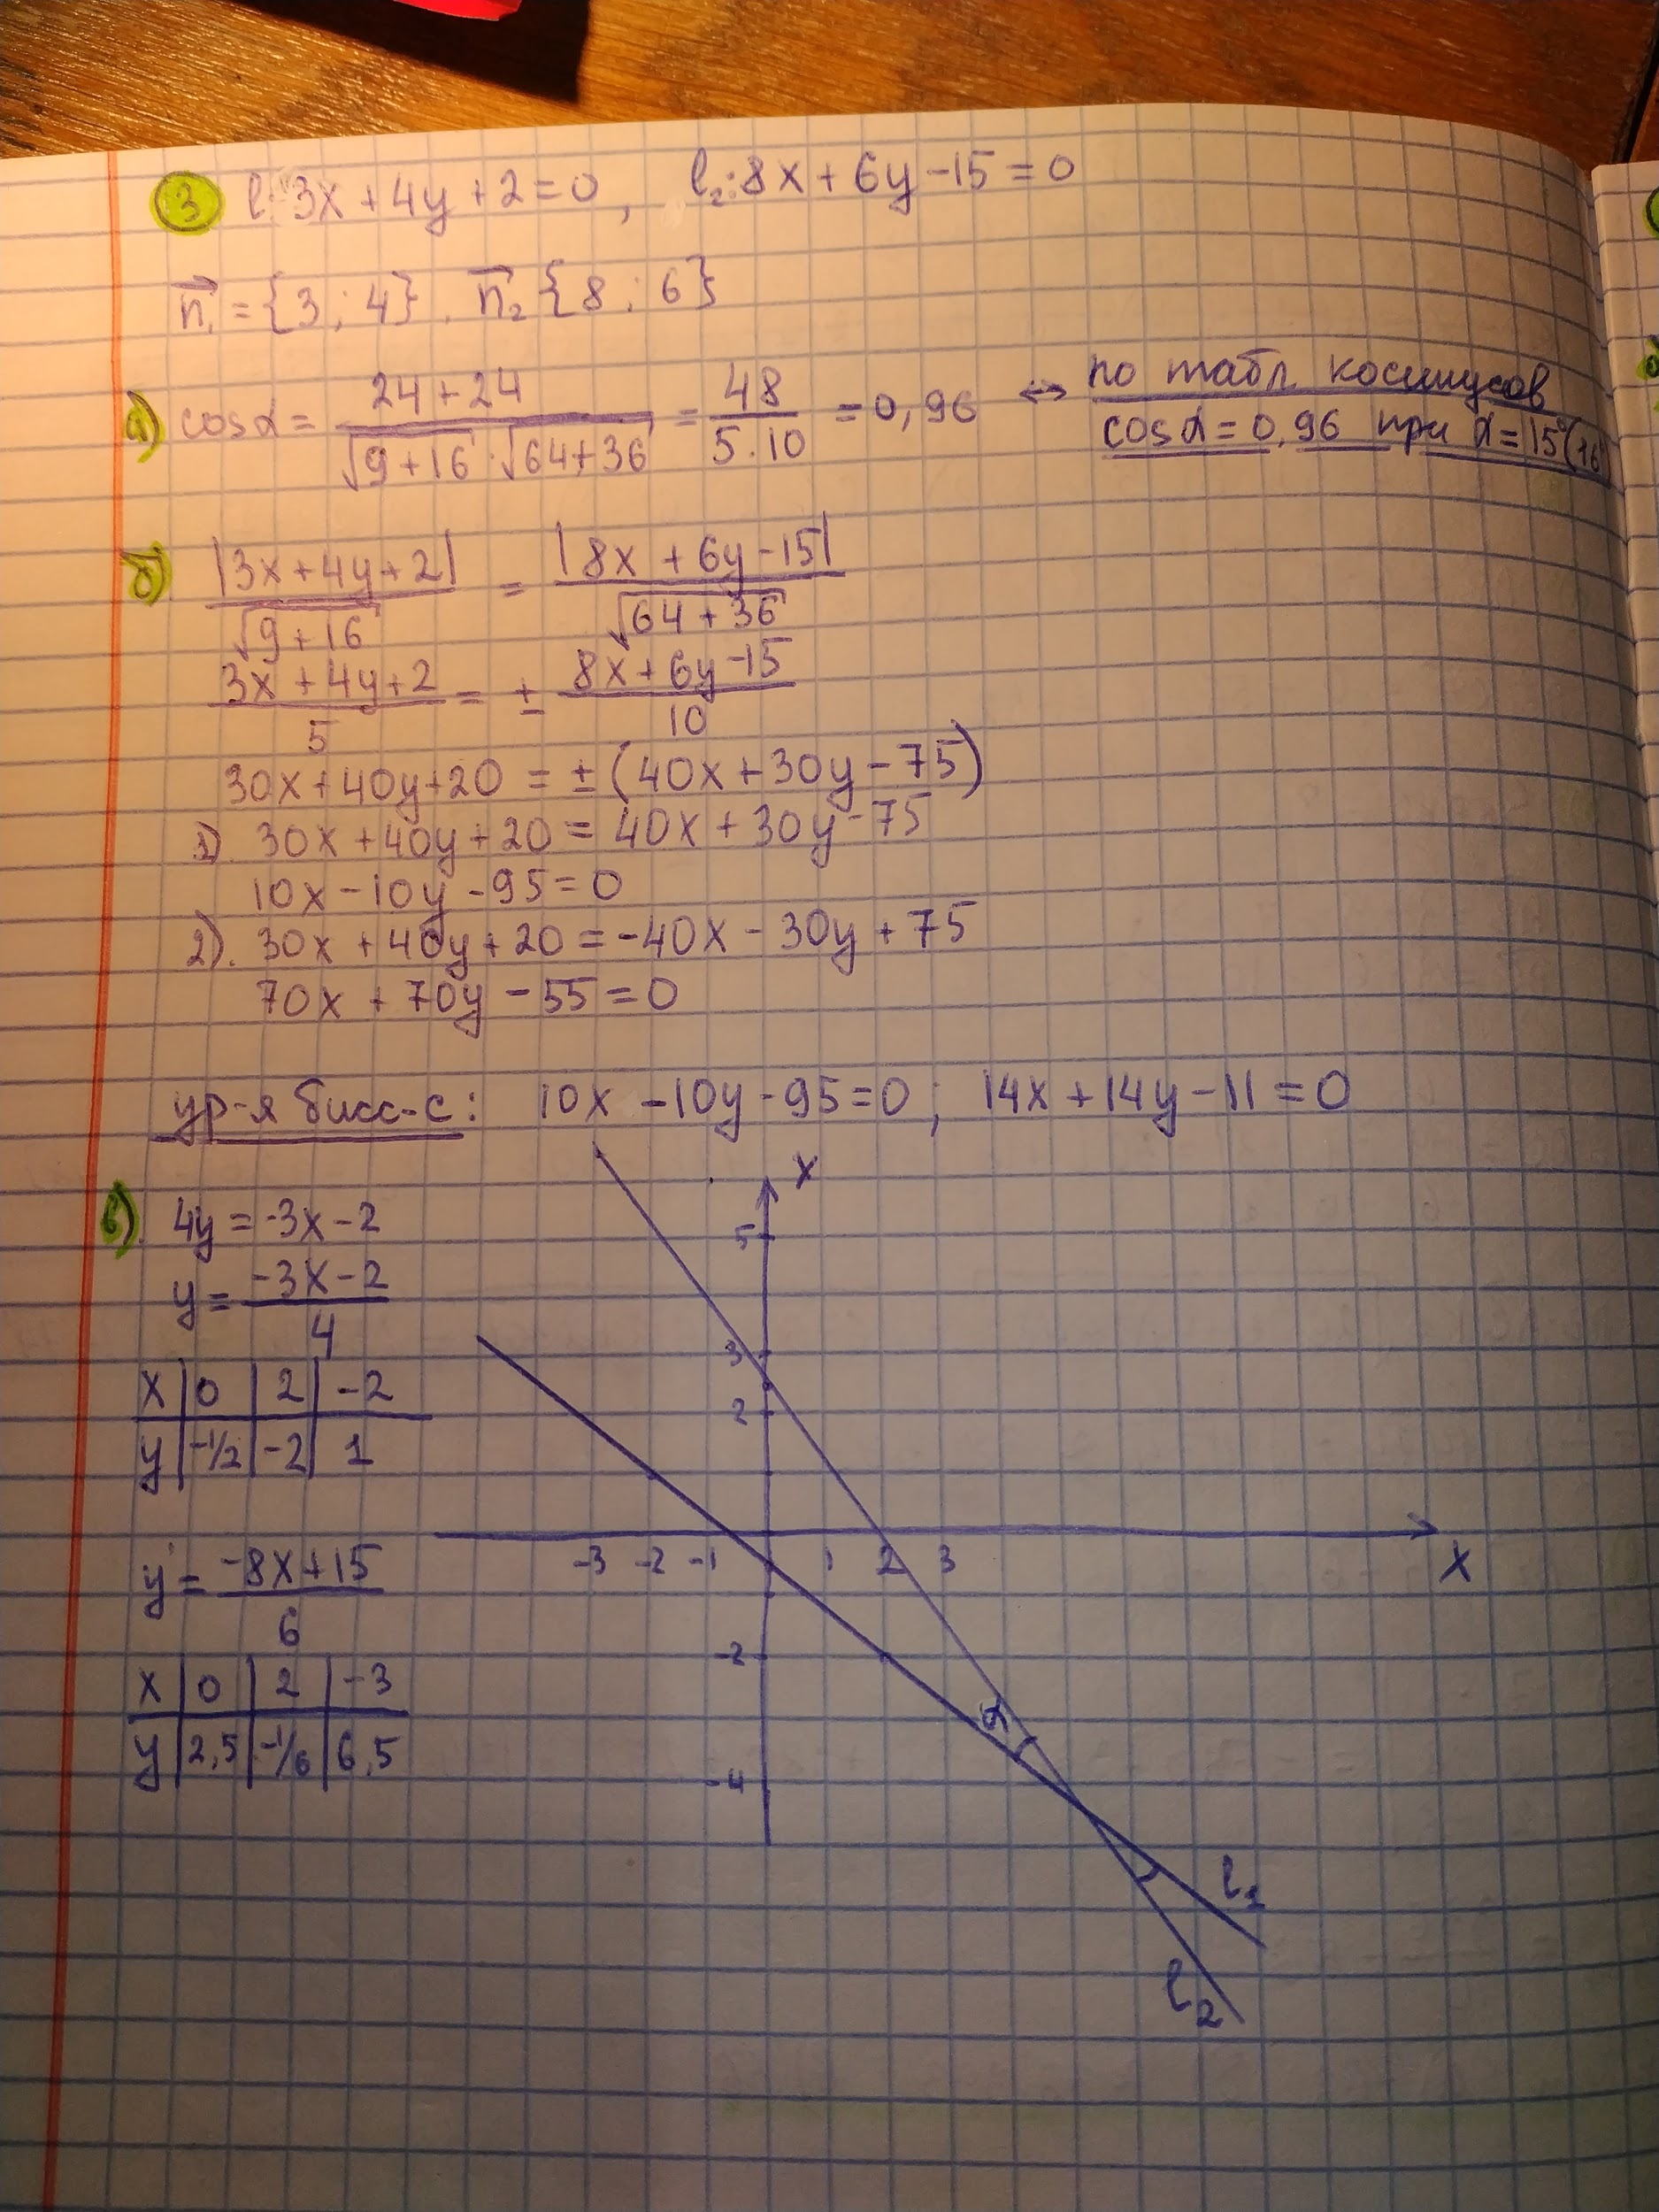 3 l: 3x + 4y + 2 = 0, l₂: 8x + 6y - 15 = 0
n₁ = {3 ; 4}. n₂ {8 ; 6}
а) cos α = (24 + 24)/(√(9+16) · √(64+36)) = 48/(5·10) = 0,96 ↔ по табл. косинусов
cos α = 0,96 при α = 15° (16
б) |3x + 4y + 2|/√(9+16) = |8x + 6y - 15|/√(64+36)
(3x + 4y + 2)/5 = ± (8x + 6y - 15)/10
30x + 40y + 20 = ± (40x + 30y - 75)
1). 30x + 40y + 20 = 40x + 30y - 75
10x - 10y - 95 = 0
2). 30x + 40y + 20 = -40x - 30y + 75
70x + 70y - 55 = 0
ур-я бисс-с: 10x - 10y - 95 = 0; 14x + 14y - 11 = 0
в) 4y = -3x - 2
y = (-3x - 2)/4
x | 0 | 2 | -2
y | -1/2 | -2 | 1
y = (-8x + 15)/6
x | 0 | 2 | -3
y | 2,5 | -1/6 | 6,5
x
5
3
2
-3 -2 -1 1 2 3
x
-2
α
-4
l₁
l₂